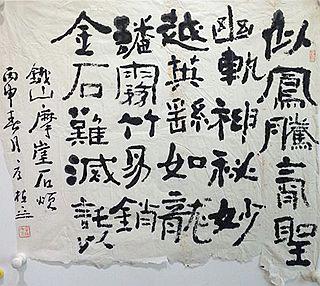 似鳳騰霄聖
幽軌神秘妙
越英繇如龍
蟠霧竹易銷
金石難滅託以
鐵山摩崖石頌
丙申春月